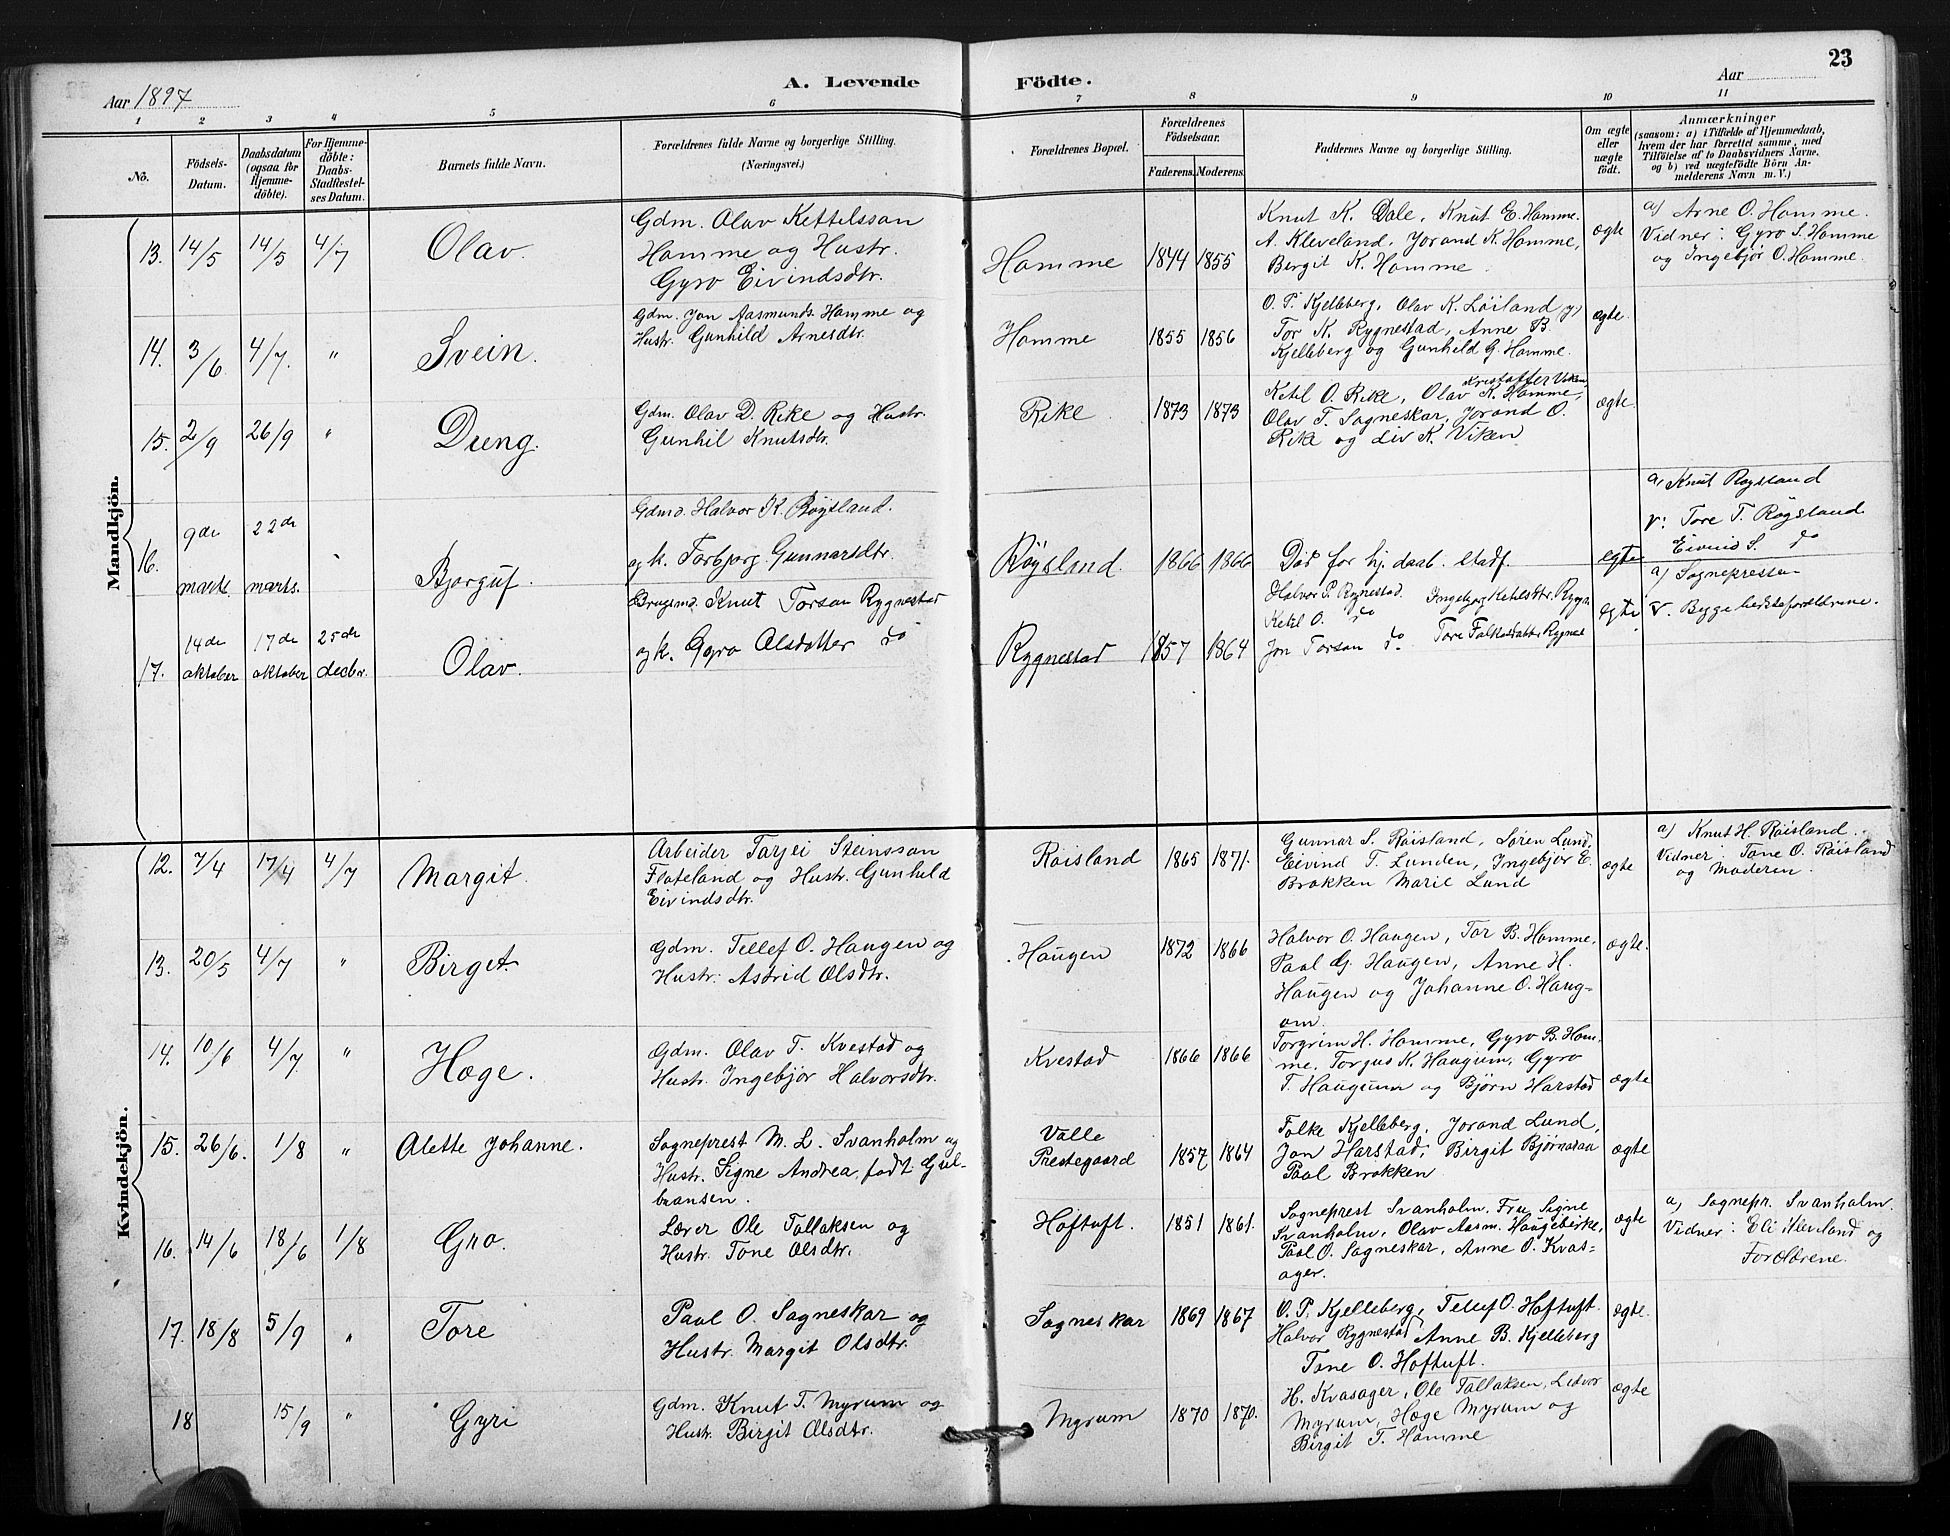 23
Aar 1897
A. Levende Födte.
Aar
1 2 3 4 5 6 7 8 9 10 11
No.
Födsels-Datum.
Daabsdatum (ogsaa for Hjemmedöbte).
For Hjemmedöbte: Daabs-Stadfæstelses Datum.
Barnets fulde Navn.
Forældrenes fulde Navne og borgerlige Stilling.
(Næringsvei.)
Forældrenes Bopæl.
Forældrenes Födselsaar.
Faderens. Moderens.
Faddernes Navne og borgerlige Stilling.
Om ægte eller uægte födt.
Anmærkninger
(saasom: a) i Tilfælde af Hjemmedaab, hvem der har forrettet samme, med Tilföielse af to Daabsvidners Navne, og b) ved uægtefödte Börn Anmelderens Navn m. V.)
Mandkjön.
13. 14/5 14/5 4/7 Olav.
Gdm. Olav Kettelsson
Homme og Hustr.
Gyro Eivindsdtr.
Homme 1844 1855
Knut K. Dale, Knut E. Homme.
A. Kleveland, Jorand K. Homme,
Bergit K. Homme.
ægte
a) Arne O. Homme.
Vidner: Gyro S. Homme
og Ingebjør O. Homme.
14. 3/6 4/7. " Svein.
Gdm. Jon Aasmunds. Homme og
Hustr. Gunhild Arnesdtr.
Homme 1855 1856
O. P. Kjelleberg, Olav K. Løiland
Tor K. Rygnestad, Anne B.
Kjelleberg og Gunhild G. Homme.
ægte.
15. 2/9 26/9 " Dreng.
Gdm. Olav D. Rike og Hustr.
Gunhil Knutsdtr.
Rike. 1873 1873
Kristoffer Viken,
Ketil O. Rike, Olav K. Homme,
Olav T. Sagneskar, Jorand O.
Rike og Liv K. Viken.
ægte.
16. 9de marts 22de marts. Bjorguf.
Gdmd. Halvor K. Røysland.
og k. Torbjorg Gunnarsdtr.
Røysland. 1866 1866
Død før hj. daab. stadf.
egte
a, Knut Røysland
V: Tore T. Røgsland
Eivind S. do
17. 14de oktober 17de oktober 25de decbr. Olav.
Brugsmd. Knut Torson Rygnestad
og k. Gyro Olsdotter do
Rygnestad 1857 1864
Halvor P. Rygnestad. Ingebjorg Ketilsdtr. Rygn.
Ketil O. do
Jon Torson do Tore Folkesdatter Rygnes
egte
a) Sognepresten
V. Byggebedsteforeldrene.
Kvindekjön.
12. 7/4 17/4 4/7 Margit.
Arbeider Tarjei Steinsson
Flateland og Hustr. Gunhild
Eivindsdtr.
Røisland 1865 1871.
Gunnar S. Røisland, Søren Lund,
Eivind T. Lunden, Ingebjør E.
Brokken Marie Lund
ægte
a) Knut H. Røisland.
Vidner: Tone O. Røisland
og Moderen.
13. 20/5 4/7 " Birget.
Gdm. Tellef O. Haugen og
Hustr. Astrid Olsdtr.
Haugen 1872 1866
Halvor O. Haugen, Tor B. Homme,
Paal G. Haugen, Anne H.
Haugen og Johanne O. Haug-
om.
ægte.
14. 10/6 4/7 " Hæge.
Gdm. Olav T. Kvestad og
Hustr. Ingebjør Halvorsdtr.
Kvestad 1866 1866
Torgrim H. Homme, Gyro B. Hom-
me, Torgus K. Haugum, Gyro
T. Haugum og Bjørn Harstad
ægte
15. 26/6. 1/8 " Alette Johanne.
Sogneprest M. L. Svanholm og
Hustr. Signe Andrea, født Gul-
bransen.
Valle
Prestegaard 1857 1864
Folke Kjelleberg, Jorand Lund,
Jon Harstad, Birgit Bjørnaraa
Paal Brokken
ægte
16. 14/6 18/6 1/8 Gro.
Lærer Ole Tallaksen og
Hustr. Tone Olsdtr.
Hoftuft. 1851 1861.
Sogneprest Svanholm, Fru Signe
Svanholm, Olav Aasm. Haugebirke,
Paal O. Sagneskar, Anne O. Kvas-
ager.
ægte
a, Sognepr. Svanholm.
Vidner: Eli Kleveland og
Forældrene.
17. 18/8 5/9 " Tore
Paal O. Sagneskar og
Hustr. Margit Olsdtr.
Sagneskar 1869 1867
O. P. Kjelleberg, Tellef O. Hoftuft.
Halvor Rygnestad, Anne B. Kjelleberg
Tone O. Hoftuft.
ægte.
18 15/9 " Gyri
Gdm. Knut T. Myrum og
Hustr. Birgit Olsdtr.
Myrum 1870 1870.
H. Kvasager, Ole Tallaksen, Lidvor
Myrum, Hæge Myrum og
Birgit T. Homme
ægte